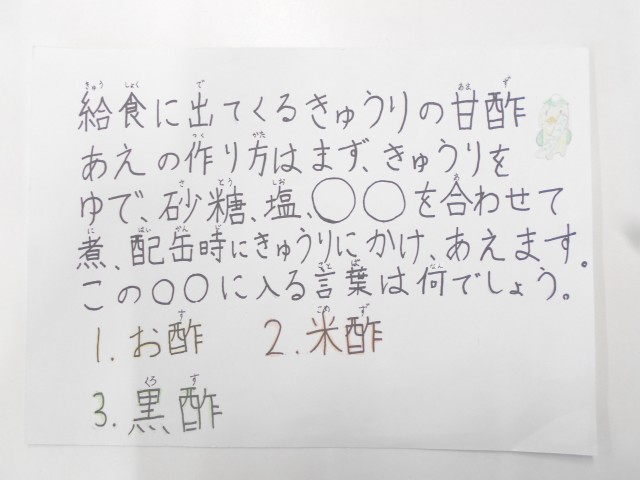 給食に出てくるきゅうりの甘酢
あえの作り方はまず、きゅうりを
ゆで、砂糖、塩、〇〇を合わせて
煮、配缶時にきゅうりにかけ、あえます。
この〇〇に入る言葉は何でしょう。
1. お酢 2. 米酢
3. 黒酢